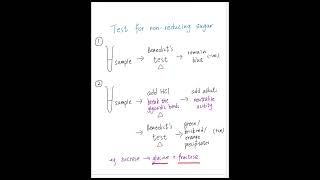 Test for non-reducing sugar
1
sample → Benedict's test △ → remain blue (-ve)
2
sample → add HCl break the glycosidic bonds △ → add alkali neutralise acidity
→ Benedict's test △ → green/ brickred/ orange precipitates (+ve)
eg sucrose → glucose + fructose